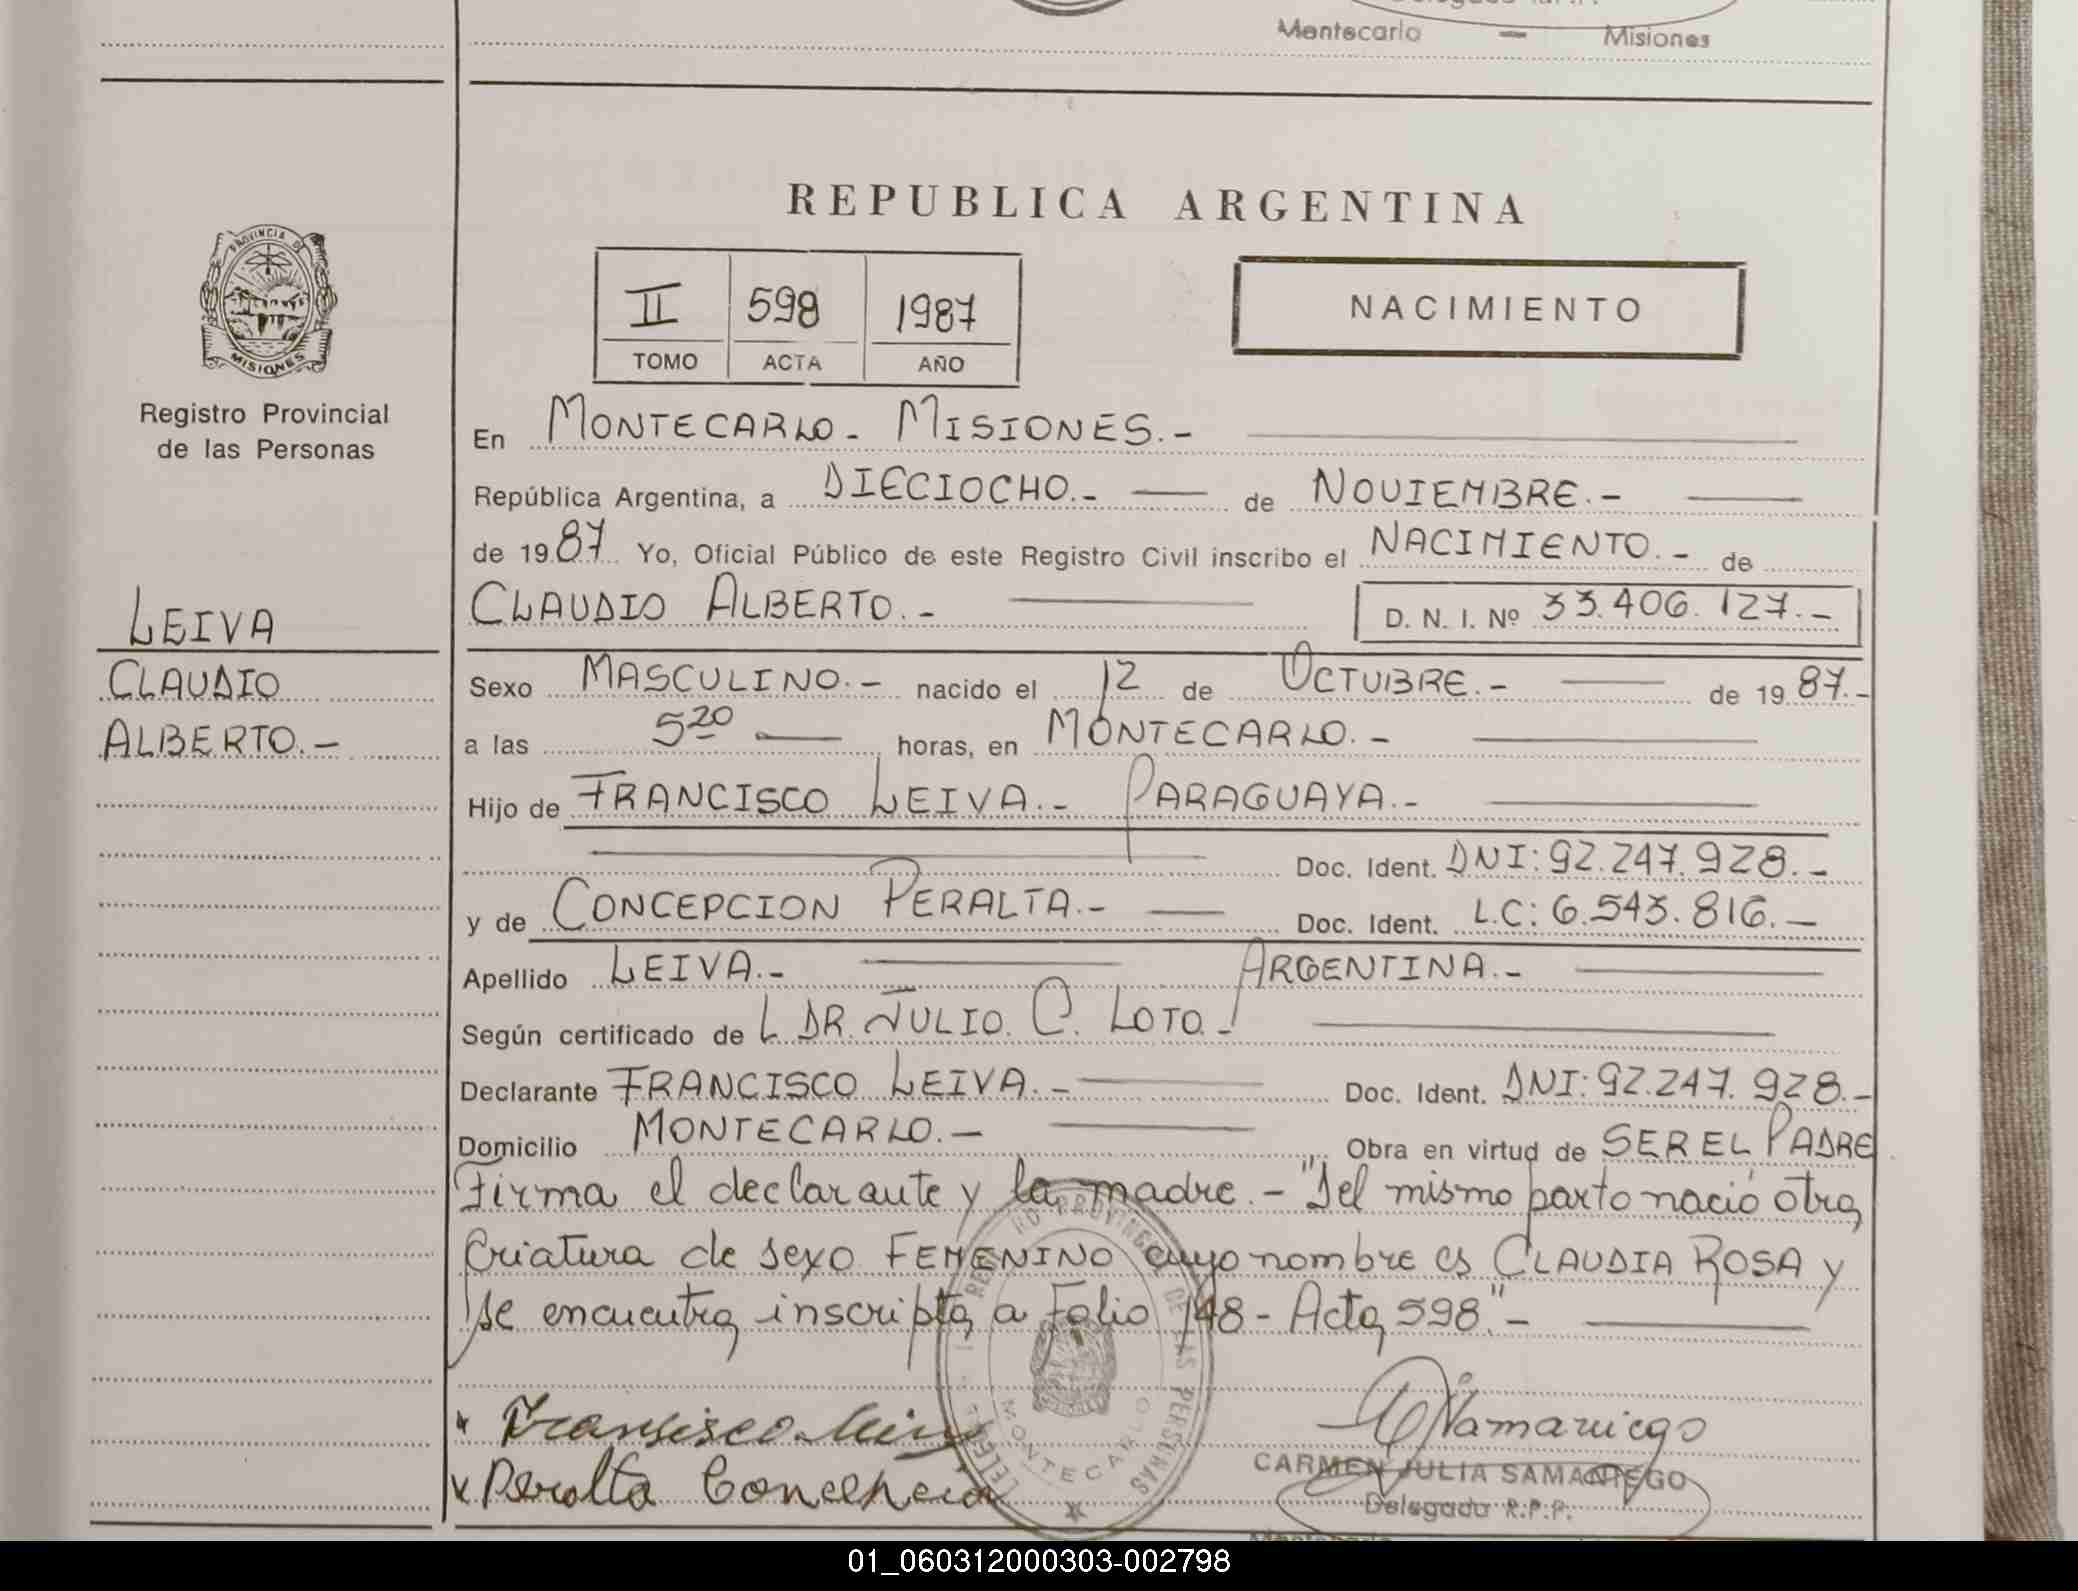 Montecarlo — Misiones
REPUBLICA ARGENTINA
PROVINCIA DE
MISIONES
Registro Provincial
de las Personas
LEIVA
CLAUDIO
ALBERTO.-
II 598 1987
TOMO ACTA AÑO
NACIMIENTO
En MONTECARLO - MISIONES.-
República Argentina, a DIECIOCHO.- de NOVIEMBRE.-
de 1987 Yo, Oficial Público de este Registro Civil inscribo el NACIMIENTO.- de
CLAUDIO ALBERTO.- D. N. I. Nº 33.406.127.-
Sexo MASCULINO.- nacido el 12 de OCTUBRE.- de 1987.-
a las 5 20 horas, en MONTECARLO.-
Hijo de FRANCISCO LEIVA.- PARAGUAYA.-
Doc. Ident. DNI: 92.247.928.-
y de CONCEPCION PERALTA.- Doc. Ident. L.C: 6.543.816.-
Apellido LEIVA.- ARGENTINA.-
Según certificado de L DR. JULIO. C. LOTO.-
Declarante FRANCISCO LEIVA.- Doc. Ident. DNI: 92.247.928.-
Domicilio MONTECARLO.- Obra en virtud de SER EL PADRE
Firma el declarante y la madre.- "Del mismo parto nació otra
criatura de sexo FEMENINO cuyo nombre es CLAUDIA ROSA y
se encuentra inscripta a Folio 148 - Acta 598".-
REGISTRO PROVINCIAL DE LAS PERSONAS
MONTECARLO
Peralta Concepcion
CARMEN JULIA SAMANIEGO
Delegado R.P.P.
01_060312000303-002798